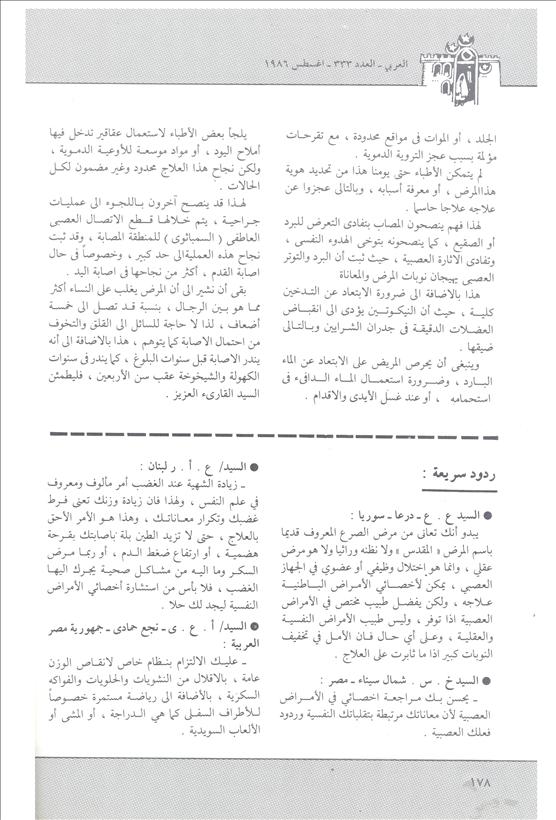 العربي ـ العدد ٣٣٣ ـ اغسطس ١٩٨٦
الجلد ، أو الموات في مواقع محدودة ، مع تقرحات
مؤلمة بسبب عجز التروية الدموية .
لم يتمكن الأطباء حتى يومنا هذا من تحديد هوية
هذا المرض ، أو معرفة أسبابه ، وبالتالى عجزوا عن
علاجه علاجا حاسما .
لهذا فهم ينصحون المصاب بتفادى التعرض للبرد
أو الصقيع ، كما ينصحونه بتوخى الهدوء النفسى ،
وتفادى الاثارة العصبية ، حيث ثبت أن البرد والتوتر
العصبى يهيجان نوبات المرض والمعاناة
هذا بالاضافة الى ضرورة الابتعاد عن التدخين
كلية ، حيث أن النيكوتين يؤدى الى انقباض
العضلات الدقيقة فى جدران الشرايين وبالتالى
ضيقها .
وينبغى أن يحرص المريض على الابتعاد عن الماء
البارد ، وضرورة استعمال الماء الدافىء فى
استحمامه ، أو عند غسل الأيدى والاقدام .
يلجأ بعض الأطباء لاستعمال عقاقير تدخل فيها
أملاح اليود ، أو مواد موسعة للأوعية الدموية ،
ولكن نجاح هذا العلاج محدود وغير مضمون لكل
الحالات .
لهذا قد ينصح آخرون باللجوء الى عمليات
جراحية ، يتم خلالها قطع الاتصال العصبى
العاطفى ( السمبائوى ) للمنطقة المصابة ، وقد ثبت
نجاح هذه العملية الى حد كبير ، وخصوصاً فى حال
اصابة القدم ، أكثر من نجاحها فى اصابة اليد .
بقى أن نشير الى أن المرض يغلب على النساء أكثر
مما هو بين الرجال ، بنسبة قد تصل الى خمسة
أضعاف ، لذا لا حاجة للسائل الى القلق والتخوف
من احتمال الاصابة كما يتوهم ، هذا بالاضافة الى أنه
يندر الاصابة قبل سنوات البلوغ ، كما يندر فى سنوات
الكهولة والشيخوخة عقب سن الأربعين ، فليطمئن
السيد القارىء العزيز .
ردود سريعة :
● السيد ع . ع ـ درعا ـ سوريا :
يبدو أنك تعانى من مرض الصرع المعروف قديما
باسم المرض « المقدس » ولا نظنه وراثيا ولا هو مرض
عقلي ، وانما هو اختلال وظيفي أو عضوي في الجهاز
العصبي ، يمكن لأخصائي الأمراض الباطنية
علاجه ، ولكن يفضل طبيب مختص في الأمراض
العصبية اذا توفر ، وليس طبيب الأمراض النفسية
والعقلية ، وعلى أي حال فان الأمل في تخفيف
النوبات كبير اذا ما ثابرت على العلاج .
● السيد خ . س . شمال سيناء ـ مصر :
ـ يحسن بك مراجعة اخصائي في الأمراض
العصبية لأن معاناتك مرتبطة بتقلباتك النفسية وردود
فعلك العصبية .
● السيد/ ع . أ . ر لبنان :
ـ زيادة الشهية عند الغضب أمر مألوف ومعروف
في علم النفس ، ولهذا فان زيادة وزنك تعنى فرط
غضبك وتكرار معاناتك ، وهذا هو الأمر الأحق
بالعلاج ، حتى لا تزيد الطين بلة باصابتك بقرحة
هضمية ، أو ارتفاع ضغط الدم ، أو ربما مرض
السكر وما اليه من مشاكل صحية يجرك اليها
الغضب ، فلا بأس من استشارة أخصائي الأمراض
النفسية ليجد لك حلا .
● السيد/ أ . ع . ى ـ نجع حمادى ـ جمهورية مصر
العربية :
ـ عليك الالتزام بنظام خاص لانقاص الوزن
عامة ، بالاقلال من النشويات والحلويات والفواكه
السكرية ، بالأضافة الى رياضة مستمرة خصوصاً
للأطراف السفلى كما هي الدراجة ، أو المشى أو
الألعاب السويدية .
١٧٨